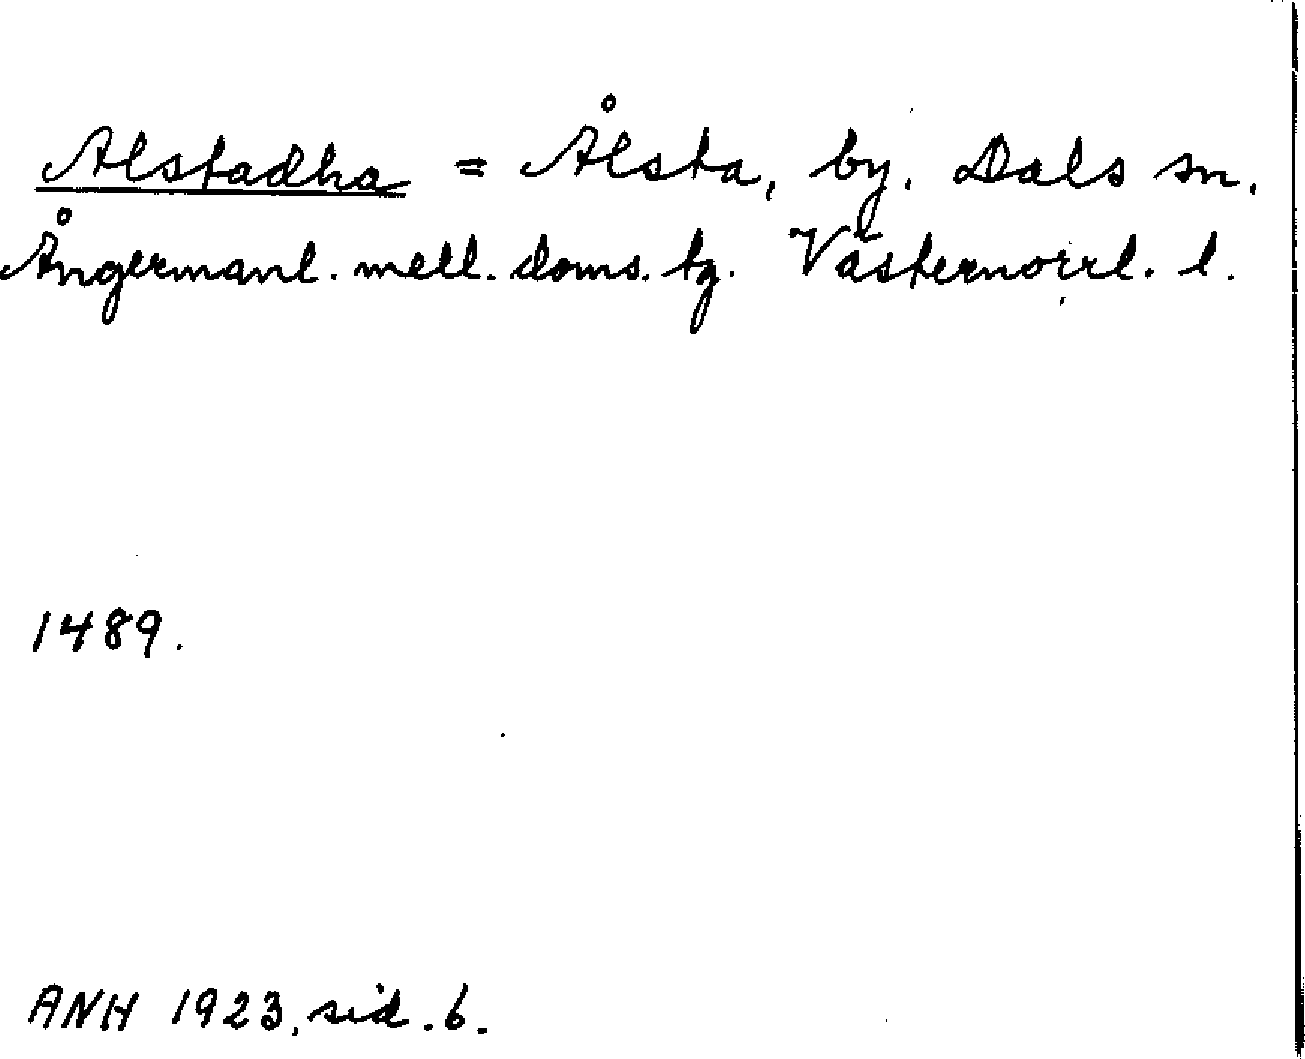 Alstadha = Ålsta, by, Dals sn.
Ångermanl. mell. doms. tg. Västernorrl. l.
1489.
ANH 1923, sid. 6.